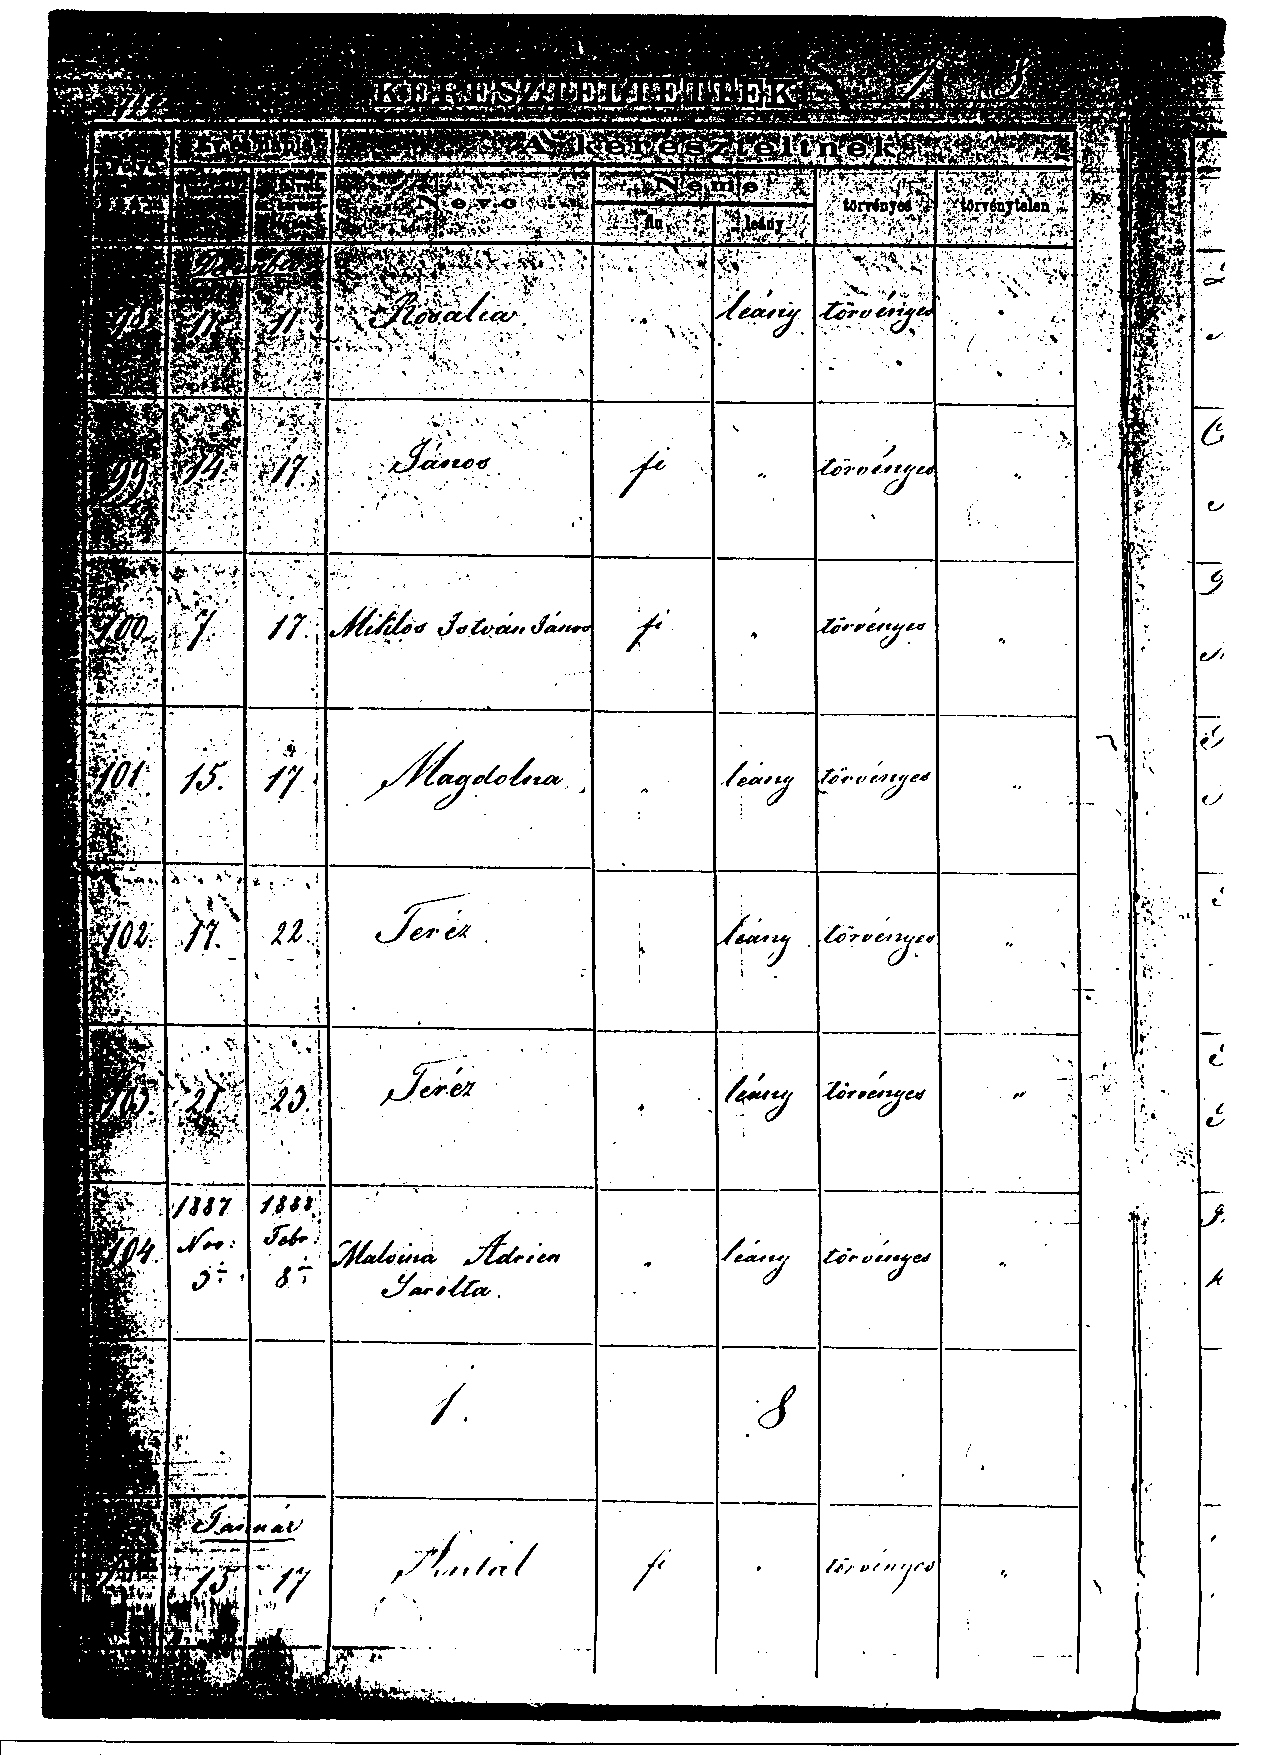 KERESZTELTETTEK 18
A kereszteltnek
Neve
Neme
fiu leány törvényes törvénytelen
98. 11. 11. Rosalia " leány törvényes "
99. 14. 17. János fi " törvényes "
100. 7. 17. Miklos István János fi " törvényes "
101. 15. 17. Magdolna " leány törvényes "
102. 17. 22. Teréz " leány törvényes "
103. 21. 23. Teréz " leány törvényes "
1887 1888
Nov: Febr:
104. 5 8 Malvina Adrien " leány törvényes "
Sarolta.
1. 8
Január
15 17 Antal fi " törvényes "